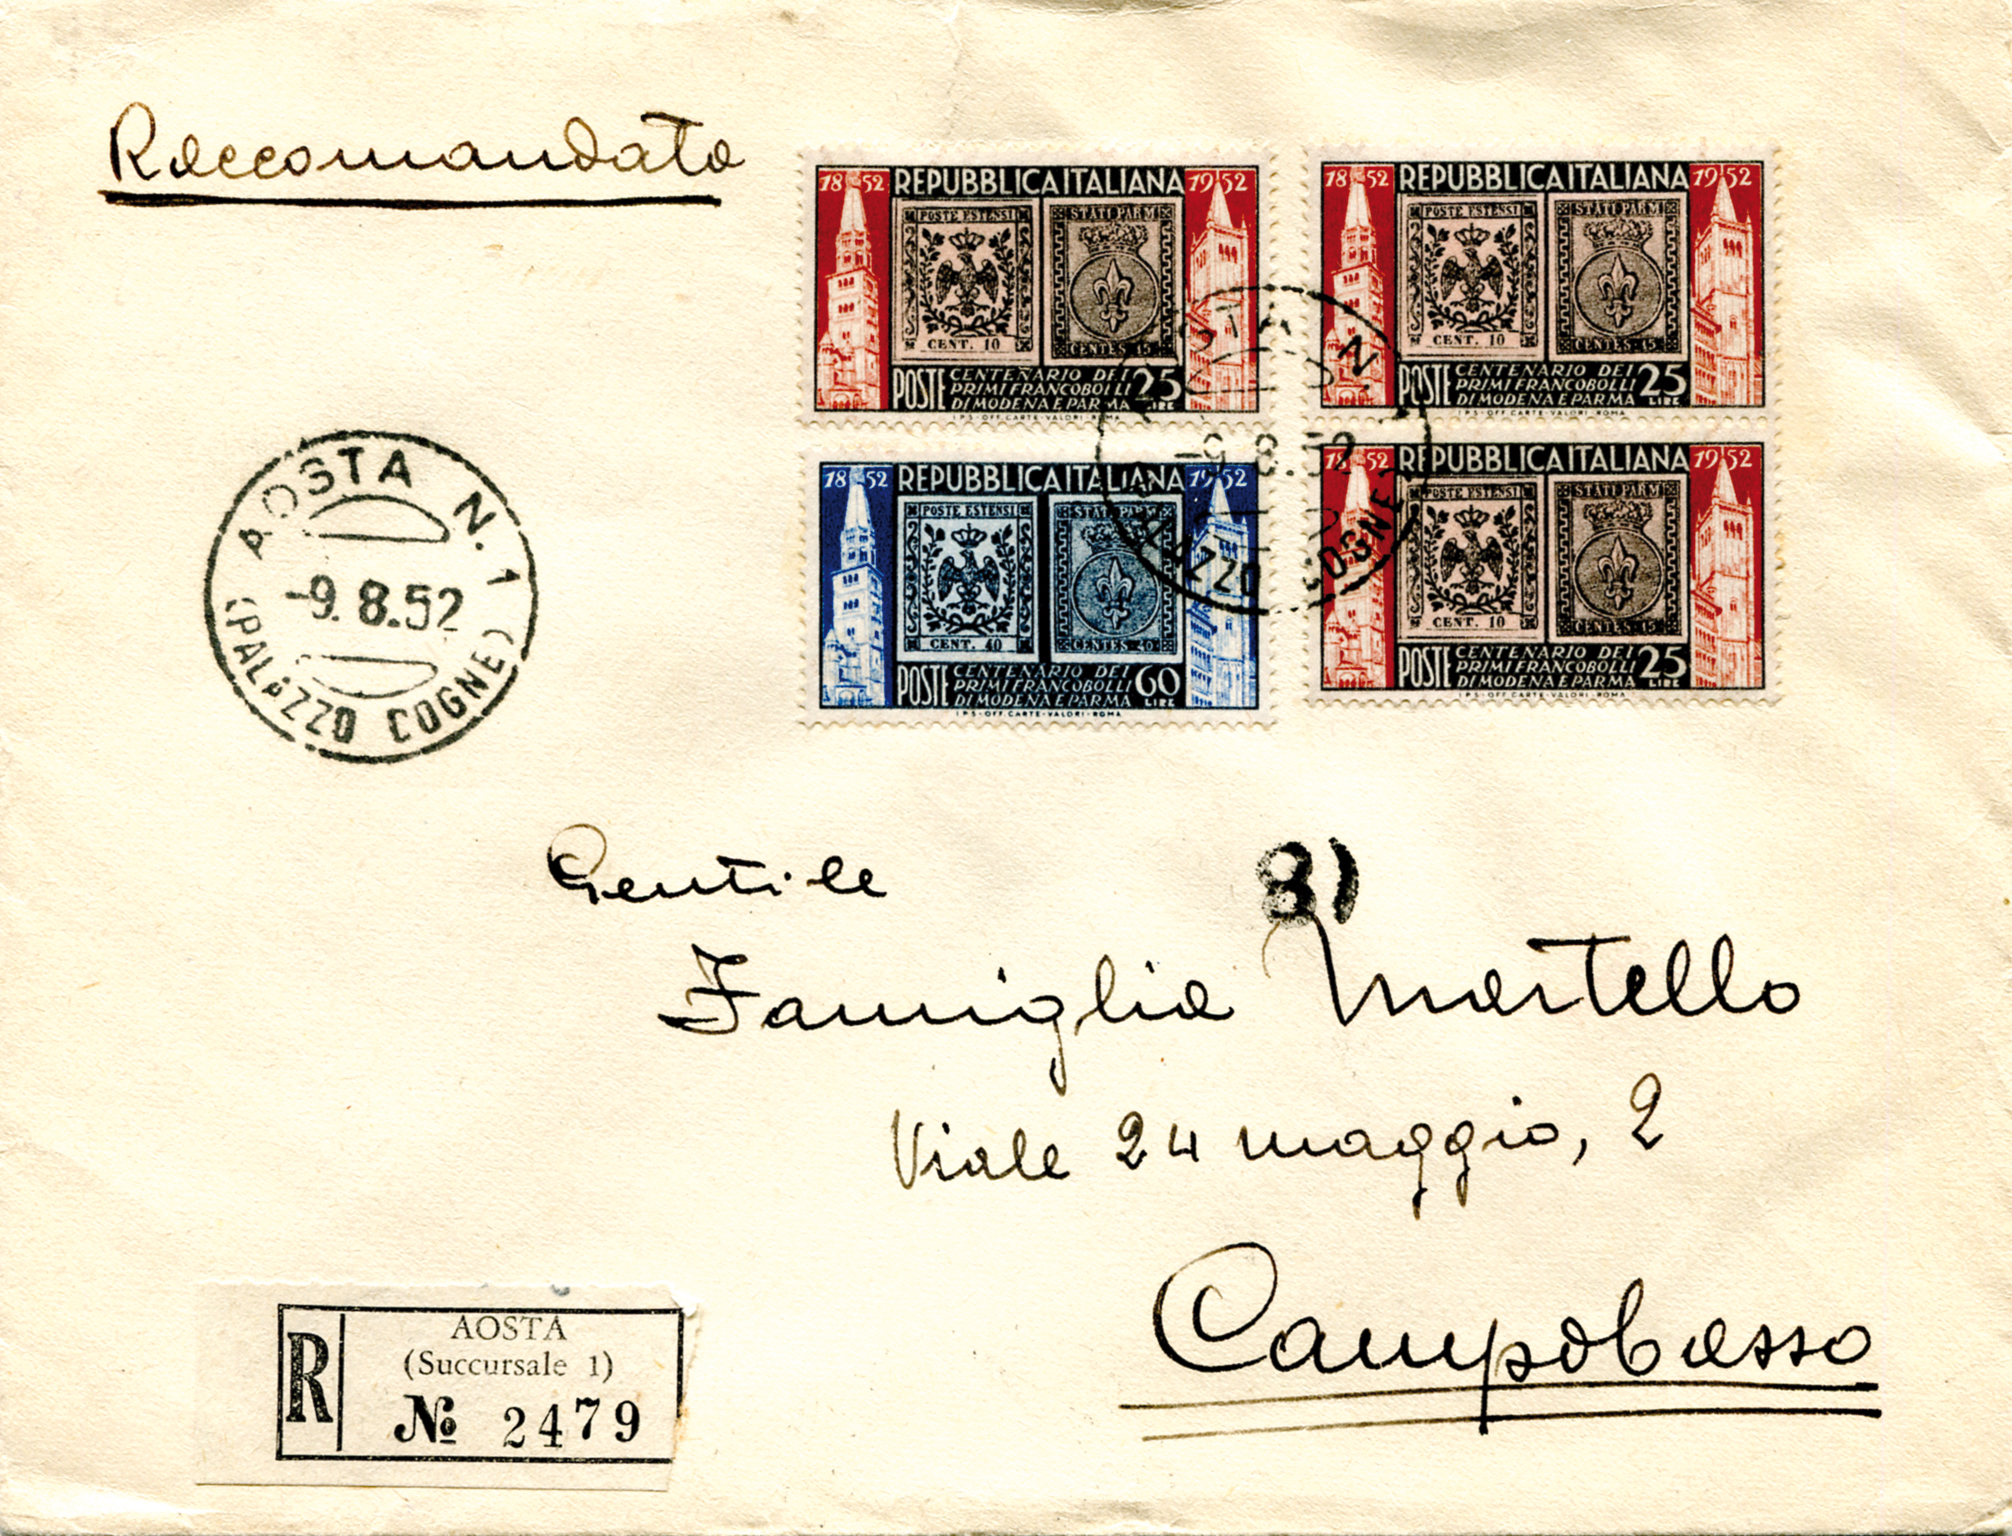 Raccomandata
1852 REPUBBLICA ITALIANA 1952
POSTE ESTENSI STATI PARM
CENT. 10 CENTES 15
POSTE CENTENARIO DEI PRIMI FRANCOBOLLI DI MODENA E PARMA 25 LIRE
I.P.S.-OFF. CARTE-VALORI-ROMA
1852 REPUBBLICA ITALIANA 1952
POSTE ESTENSI STATI PARM
CENT. 10 CENTES 15
POSTE CENTENARIO DEI PRIMI FRANCOBOLLI DI MODENA E PARMA 25 LIRE
I.P.S.-OFF. CARTE-VALORI-ROMA
1852 REPUBBLICA ITALIANA 1952
POSTE ESTENSI STATI PARM
CENT. 40 CENTES 40
POSTE CENTENARIO DEI PRIMI FRANCOBOLLI DI MODENA E PARMA 60 LIRE
I.P.S.-OFF. CARTE-VALORI-ROMA
1852 REPUBBLICA ITALIANA 1952
POSTE ESTENSI STATI PARM
CENT. 10 CENTES 15
POSTE CENTENARIO DEI PRIMI FRANCOBOLLI DI MODENA E PARMA 25 LIRE
I.P.S.-OFF. CARTE-VALORI-ROMA
AOSTA N.
-9.8.52
(PALAZZO COGNE)
AOSTA N. 1
-9.8.52
(PALAZZO COGNE)
81
Gentile
Famiglia Martello
Viale 24 maggio, 2
Campobasso
R
AOSTA
(Succursale 1)
№ 2479